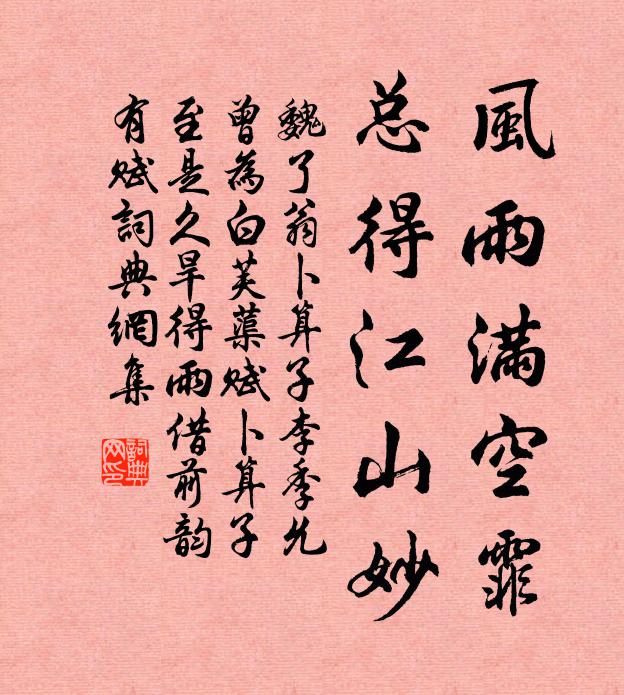 風雨滿空霏
总得江山妙
魏了翁卜算子李季允
曾為白芙蕖赋卜算子
至是久旱得雨借前韵
有赋詞典網集
詞典網印